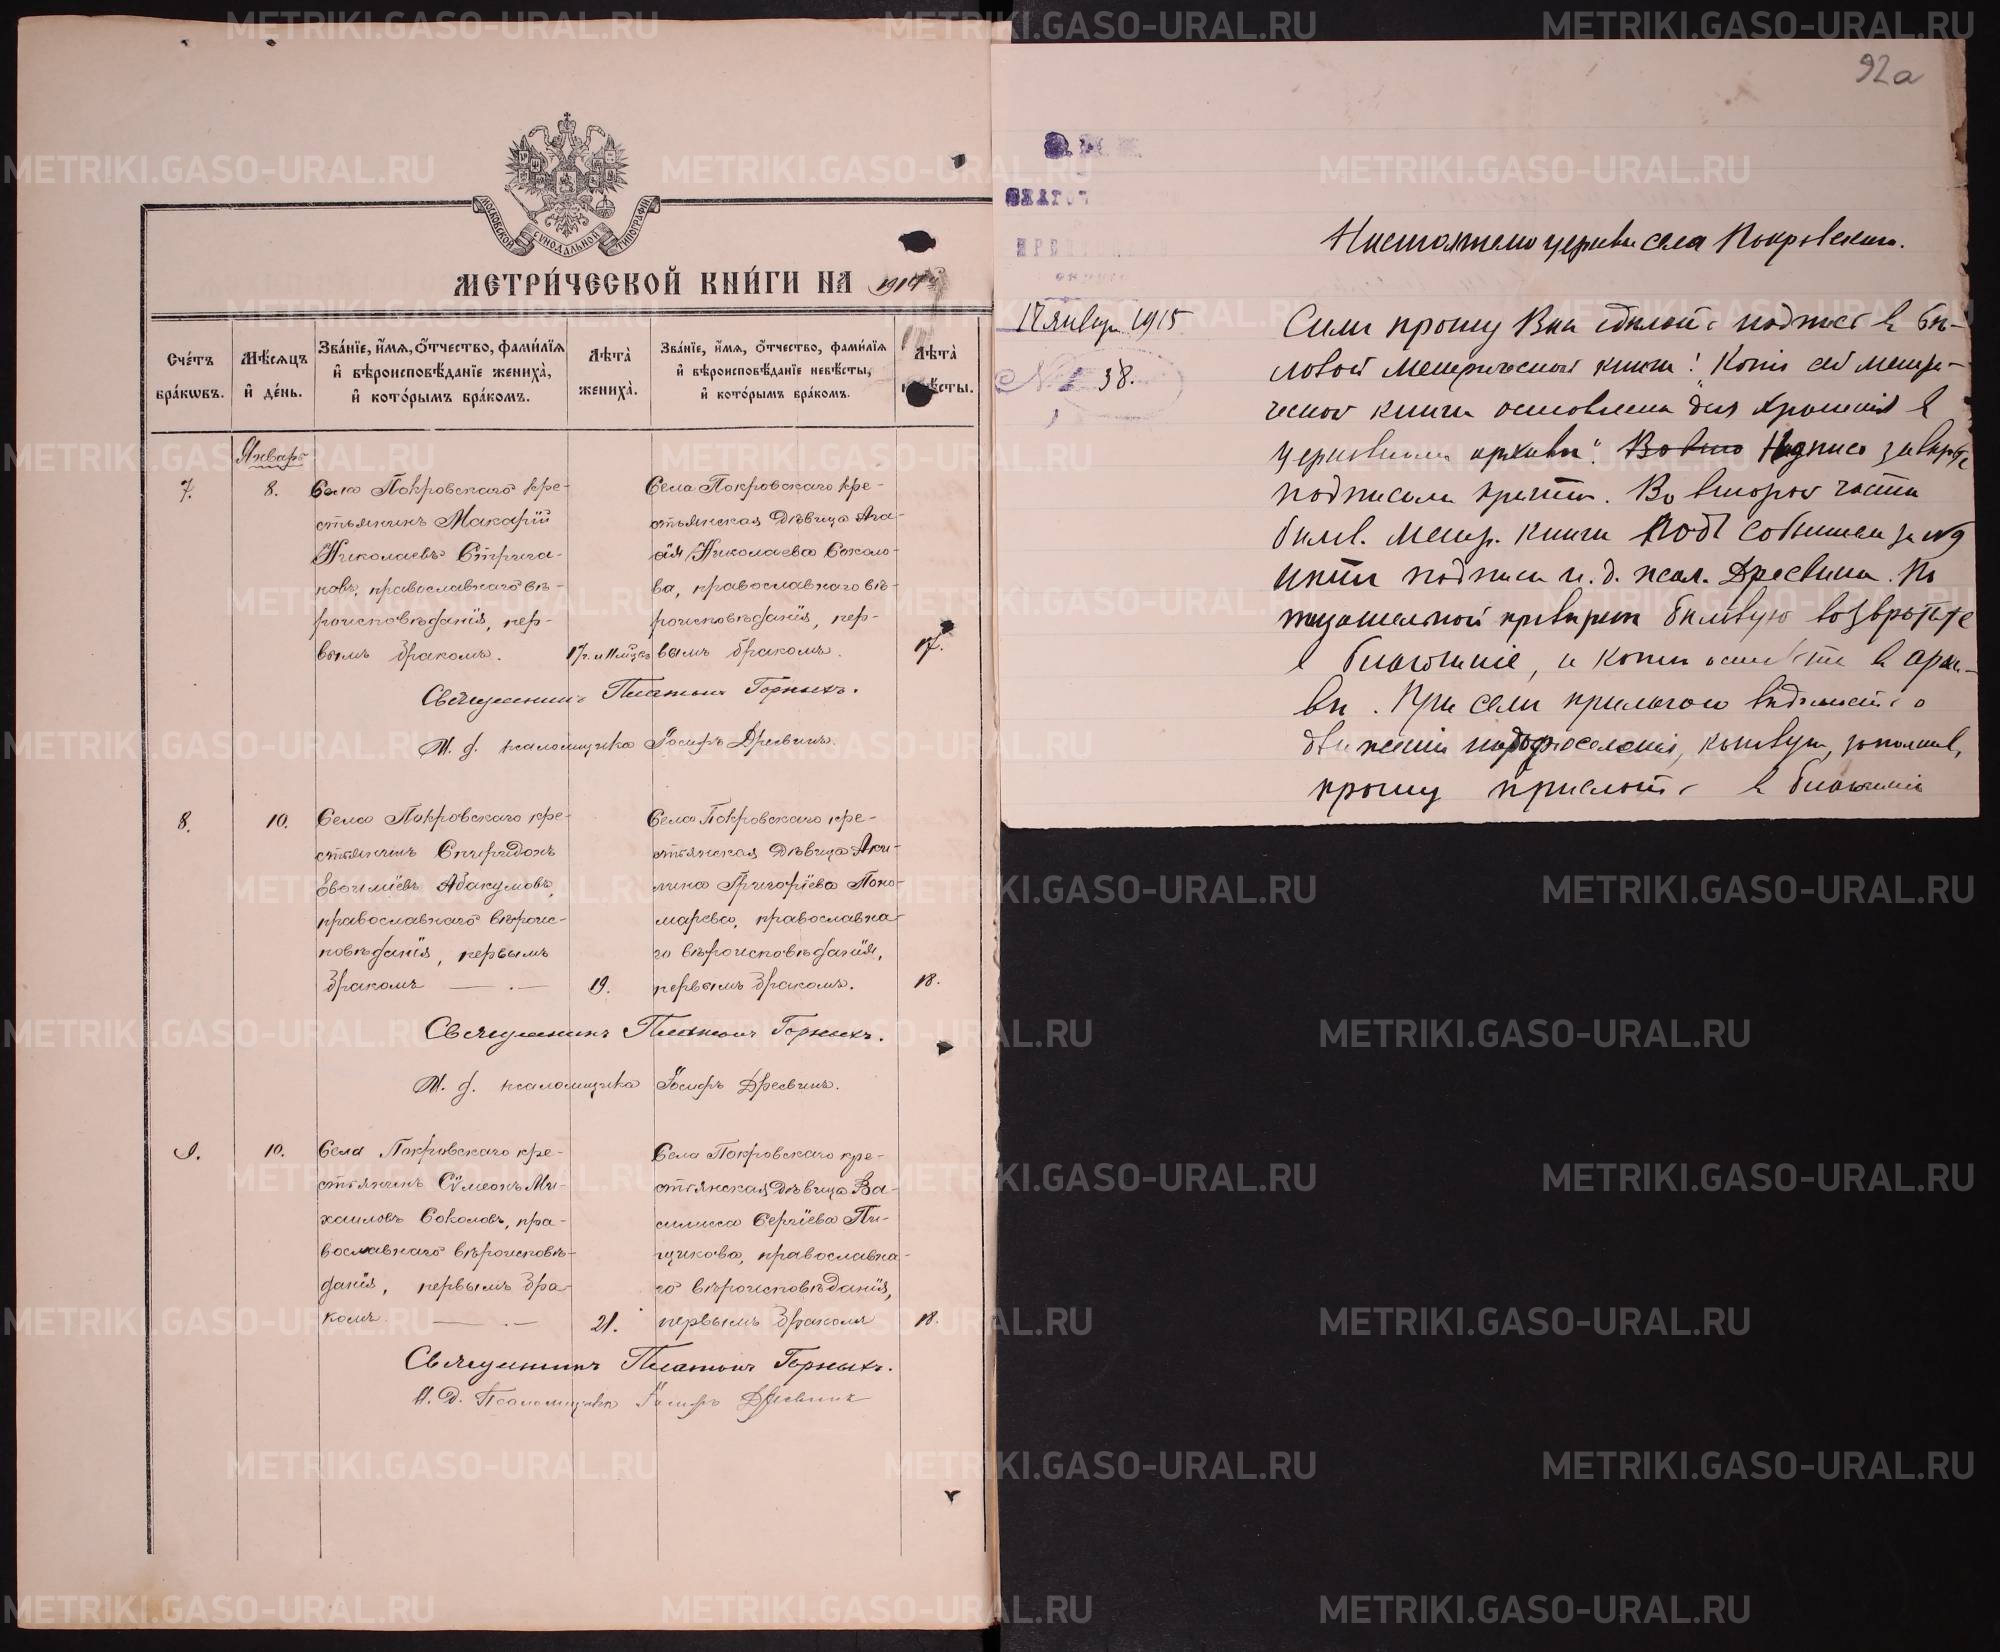 МОСКОВСКОЙ СѴНОДАЛЬНОЙ ТИПОГРАФІИ
МЕТРИ́ЧЕСКОЙ КНИ́ГИ НА 1914
Сче́тъ бра́кωвъ.
Мѣ́сяцъ и҆ де́нь.
Зва́нїе, и҆́мя, ѻ҆́тчество, фами́лїя и҆ вѣроисповѣ́данїе жениха̀, и҆ кото́рымъ бра́комъ.
Лѣта̀ жениха̀.
Зва́нїе, и҆́мя, ѻ҆́тчество, фами́лїя и҆ вѣроисповѣ́данїе невѣ́сты, и҆ кото́рымъ бра́комъ.
Лѣта̀ невѣ́сты.
Январь
7.
8.
Села Покровскаго кре-
стьянинъ Макарій
Николаевъ Стрига-
новъ, православнаго вѣ-
роисповѣданія, пер-
вымъ бракомъ.
17 г. и 11 мѣс
Села Покровскаго кре-
стьянская дѣвица Ага-
ѳія Николаева Соколо-
ва, православнаго вѣ-
роисповѣданія, пер-
вымъ бракомъ.
17.
Священникъ Платонъ Горныхъ.
И. д. псаломщика Іосифъ Дресвинъ.
8.
10.
Села Покровскаго кре-
стьянинъ Спиридонъ
Евѳиміевъ Абакумовъ,
православнаго вѣроис-
повѣданія, первымъ
бракомъ
19.
Села Покровскаго кре-
стьянская дѣвица Аки-
лина Григоріева Поно-
марева, православна-
го вѣроисповѣданія,
первымъ бракомъ.
18.
Священникъ Платонъ Горныхъ.
И. д. псаломщика Іосифъ Дресвинъ.
9.
10.
Села Покровскаго кре-
стьянинъ Сѵмеонъ Ми-
хаиловъ Соколовъ, пра-
вославнаго вѣроисповѣ-
данія, первымъ бра-
комъ
21.
Села Покровскаго кре-
стьянская дѣвица Ва-
силисса Сергіева Пи-
щикова, православна-
го вѣроисповѣданія,
первымъ бракомъ
18.
Священникъ Платонъ Горныхъ.
И. Д. Псаломщика Іосифъ Дресвинъ
92а
17 января 1915
№ 38.
церкви села Покровскаго.
Симъ прошу Васъ сдѣлать подпись въ бѣ-
ловой метрической книги: "Копія сей метри-
ческой книги оставлена для храненія въ
церковномъ архивѣ". Надпись завѣрьте
подписями причта. Во второй части
бѣлов. метр. книги подъ событіемъ за №9
нѣтъ подписи и. д. псал. Дресвина. По
тщательной провѣркѣ бѣловую возвратите
въ благочиніе, а копію оставьте въ архи-
вѣ. При семъ прилагаю вѣдомость о
движеніи народонаселенія, каковую, заполнивъ,
прошу прислать въ благочиніе
METRIKI.GASO-URAL.RU